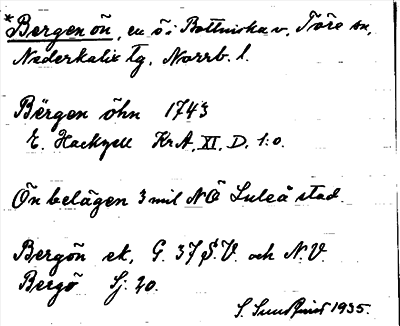 *Bergen ön, en ö i Bottniska v. Töre sn,
Nederkalix tg, Norrb. l.
Bërgen öhn 1743
E. Hackzell KrA, XI, D, 1:0.
Ön belägen 3 mil NÖ Luleå stad.
Bergön ek, G. 37 S.V. och N.V.
Bergö Sj. 20.
S. Sundqvist 1935.